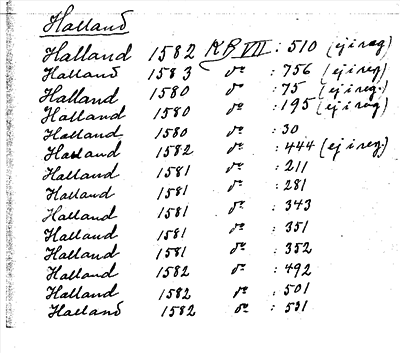 Halland
Halland 1582 KB VII : 510 (ej i reg)
Halland 1583 do : 756 (ej i reg)
Halland 1580 do : 75 (ej i reg.)
Halland 1580 do : 195 (ej i reg)
Halland 1580 do : 30
Halland 1582 do : 444 (ej i reg.)
Halland 1581 do : 211
Halland 1581 do : 281
Halland 1581 do : 343
Halland 1581 do : 351
Halland 1581 do : 352
Halland 1582 do : 492
Halland 1582 do : 501
Halland 1582 do : 531